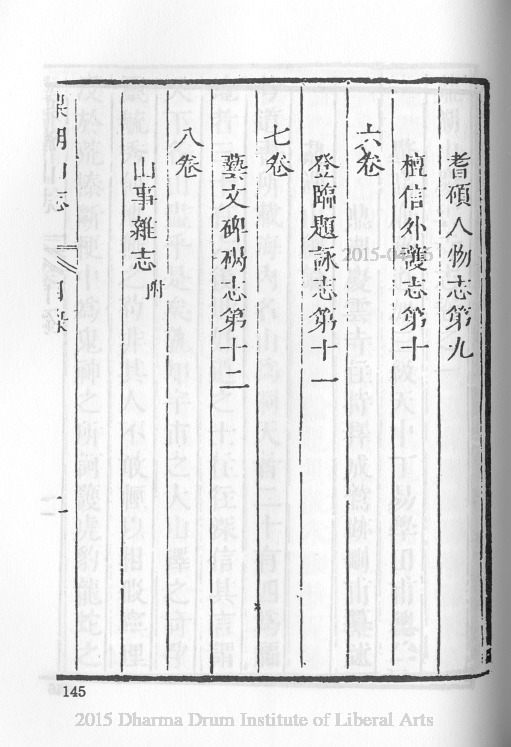 耆碩人物志第九
檀信外護志第十
六卷
登臨題詠志第十一
七卷
藝文碑碣志第十二
八卷
山事雜志附
鼎湖山志
目錄
二
145
2015 Dharma Drum Institute of Liberal Arts